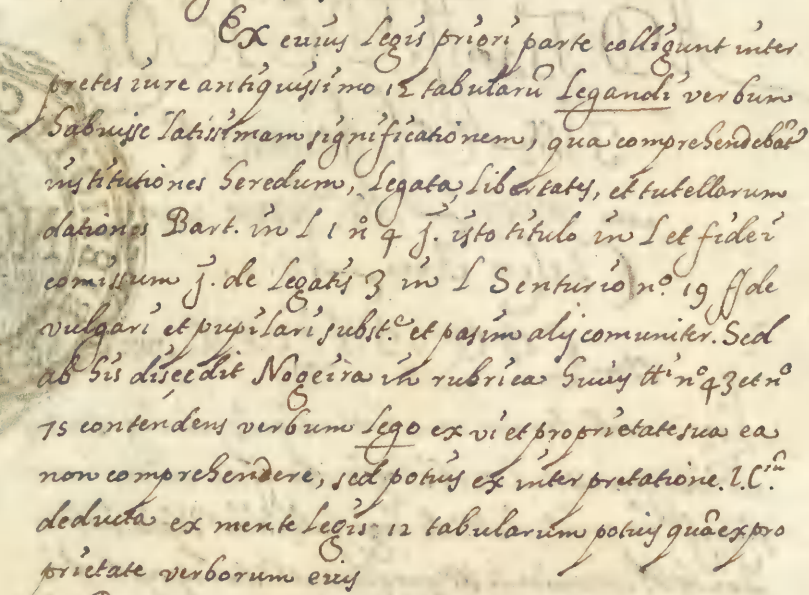 Ex cuius Legis priori parte colligunt inter
pretes iure antiquissimo 12 tabularũ Legandi verbum
habuisse latissimam significationem, qua comprehendebãt
institutiones heredum, Legata, libertates, et tutellarum
dationes Bart. in L 1 nº 4 j. isto titulo in L et fidei
comissum j. de Legatis 3 in L Senturio nº. 19 ff de
vulgari et pupilari subst.e et pasim alij comuniter. Sed
ab his discedit Nogeira in rubrica huius tti nº 43 et nº
75 contendens verbum Lego ex vi et proprietate sua ea
non comprehendere, sed potius ex inter pretatione. I.C.rũ
deducta ex mente Legis 12 tabularum potius quã ex pro
prietate verborum eius